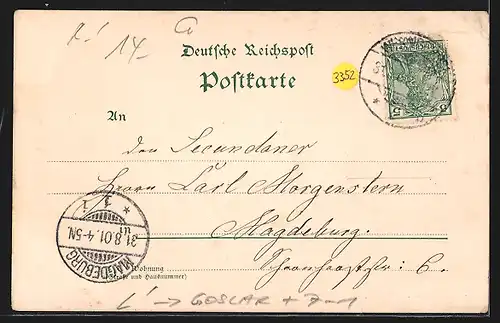 14.-
Deutsche Reichspost
Postkarte
3352
An
den Secundaner
Herrn Carl Morgenstern
Magdeburg.
Wohnung
(Straße und Hausnummer)
Scharnhorststr: 6.
MAGDEBURG
31.8.01.4-5N.
1
5 5
GOSLAR +